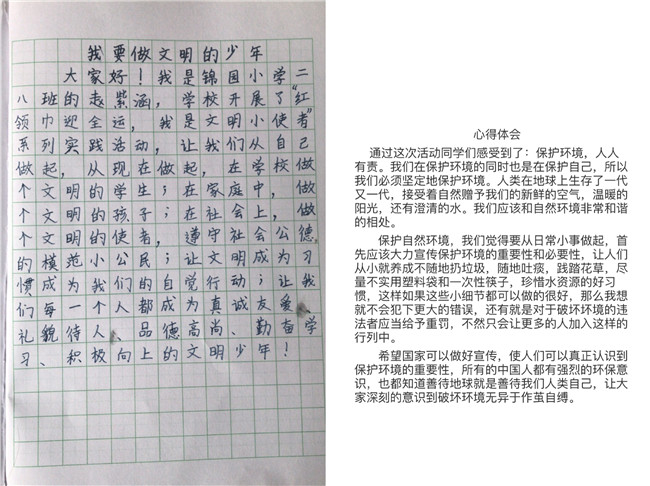 我要做文明的少年
大家好！我是锦园小学二
八班的赵紫涵，学校开展了“红
领巾迎全运，我是文明小使者”
系列实践活动，让我们从自己
做起，从现在做起，在学校做
个文明的学生；在家庭中，做
个文明的孩子；在社会上，做
个文明的使者，遵守社会公德，
的模范小公民；让文明成为习
惯成为我们的自觉行动；让我
们每一个人都成为真诚友爱、
礼貌待人、品德高尚、勤奋学
习、积极向上的文明少年！
心得体会
通过这次活动同学们感受到了：保护环境，人人
有责。我们在保护环境的同时也是在保护自己，所以
我们必须坚定地保护环境。人类在地球上生存了一代
又一代，接受着自然赠予我们的新鲜的空气，温暖的
阳光，还有澄清的水。我们应该和自然环境非常和谐
的相处。
保护自然环境，我们觉得要从日常小事做起，首
先应该大力宣传保护环境的重要性和必要性，让人们
从小就养成不随地扔垃圾，随地吐痰，践踏花草，尽
量不实用塑料袋和一次性筷子，珍惜水资源的好习
惯，这样如果这些小细节都可以做的很好，那么我想
就不会犯下更大的错误，还有就是对于破坏坏境的违
法者应当给予重罚，不然只会让更多的人加入这样的
行列中。
希望国家可以做好宣传，使人们可以真正认识到
保护环境的重要性，所有的中国人都有强烈的环保意
识，也都知道善待地球就是善待我们人类自己，让大
家深刻的意识到破坏环境无异于作茧自缚。